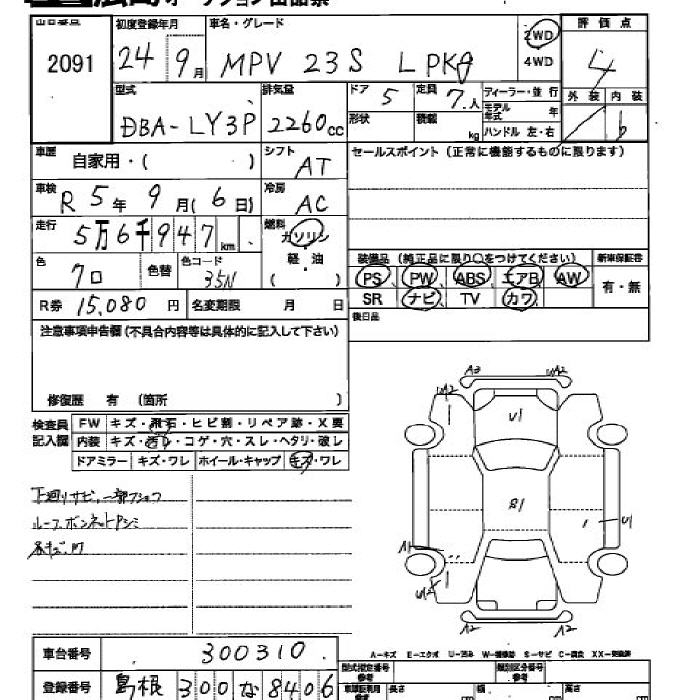 出品番号 初度登録年月 車名・グレード 評価点
2091 24 9月 MPV 23S L PKg 2WD 4WD 4
型式 排気量 ドア 5 定員 7人 ディーラー・並行 外装 内装
DBA-LY3P 2260cc 形状 積載 kg モデル年式 年 ハンドル 左・右 b
車歴 自家用・( ) シフト AT セールスポイント(正常に機能するものに限ります)
車検 R5年9月(6日) 冷房 AC
走行 5万6千947km 燃料 ガソリン・軽油 ( )
色 クロ 色替 色コード 35N 装備品(純正品に限り○をつけてください) 新車保証書
PS PW ABS エアB AW 有・無
R券 15,080円 名変期限 月 日 SR ナビ TV カワ
注意事項申告欄(不具合内容等は具体的に記入して下さい) 後日品
修復歴 有 (箇所 )
検査員記入欄 FW キズ・飛石・ヒビ割・リペア跡・X要
内装 キズ・汚れ・コゲ・穴・スレ・ヘタリ・破レ
ドアミラー キズ・ワレ ホイール・キャップ キズ・ワレ
下廻りサビ、一部フショク
ルーフボンネットトビシミ
A2 A2
U1
B1
U1
A1
A2 A2
A-キズ E-エクボ U-凹み W-補修跡 S-サビ C-腐食 XX-交換済
車台番号 300310
型式指定番号 参考 類別区分番号 参考
登録番号 島根 300 な 8406 長さ cm 幅 cm 高さ